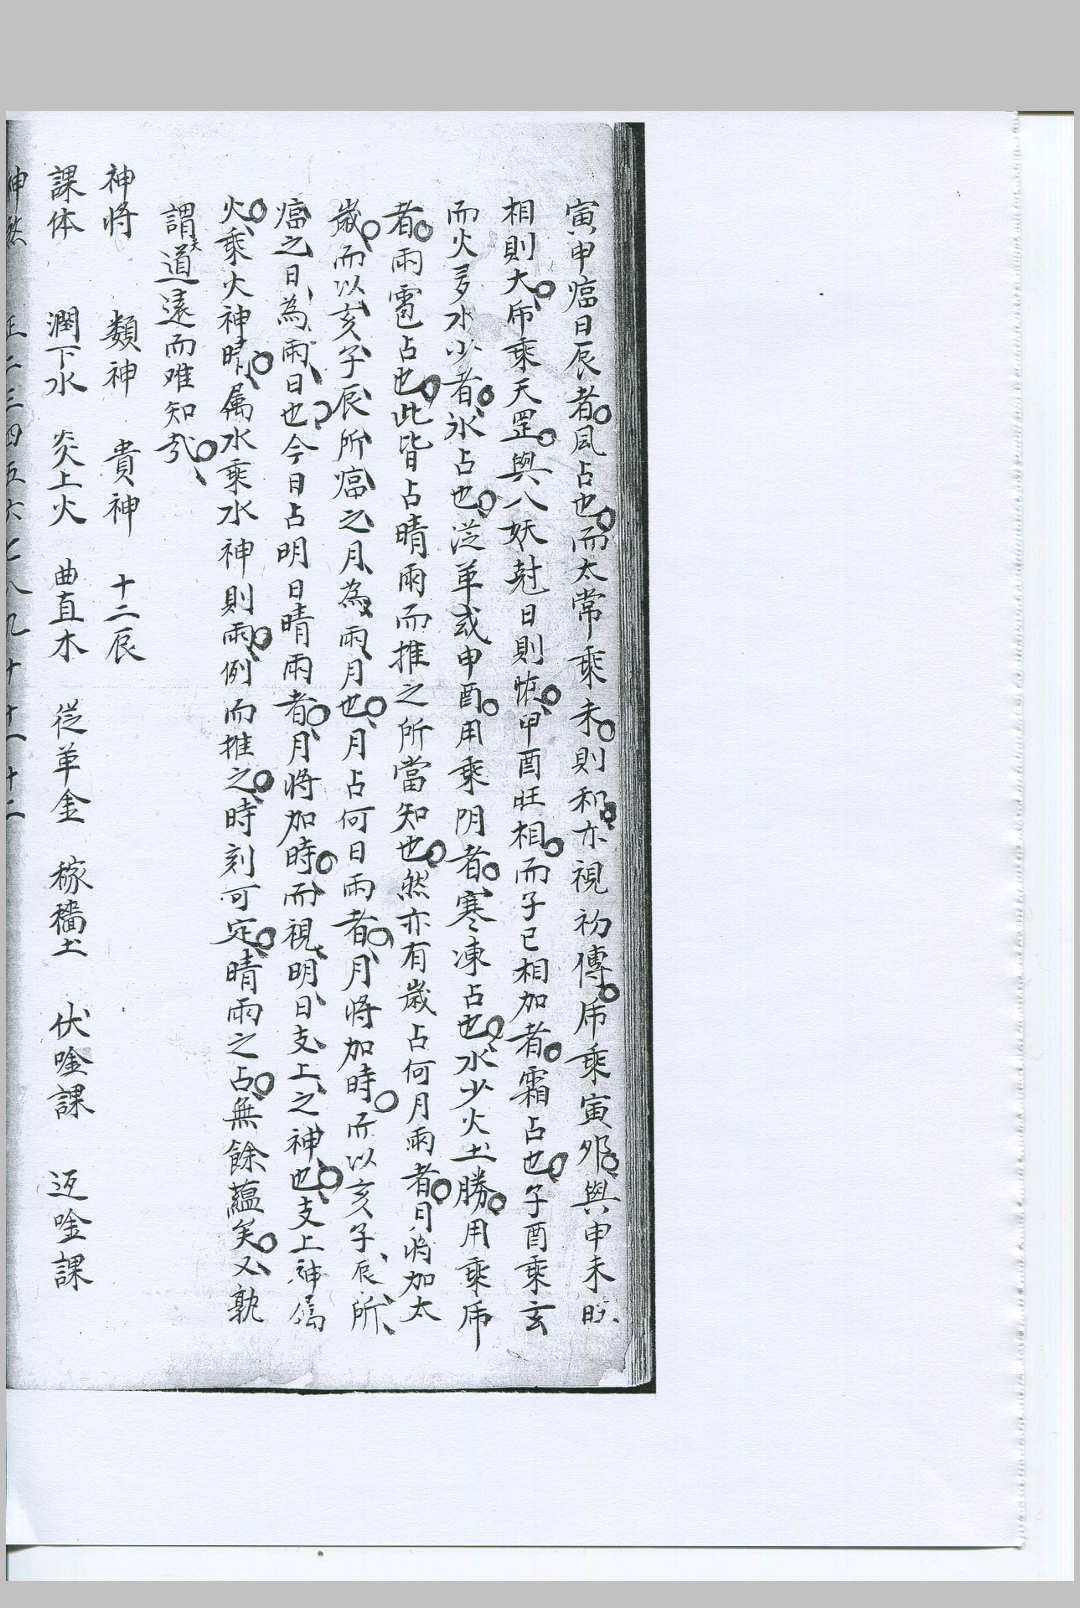 寅申臨日辰者風占也而太常乘未則和亦視初傳乕乘寅卯與申未旺
相則大乕乘天罡與八妖尅日則恢甲酉旺相而子巳相加者霜占也子酉乘玄
而火多水少者氷占也從革或申酉用乘陰者寒凍占也水少火土勝用乘乕
者雨雹占也此皆占晴雨而推之所當知也然亦有歲占何月雨者月將加太
歲而以亥子辰所臨之月為雨月也月占何日雨者月將加時而以亥子辰所
臨之日為雨日也今日占明日晴雨者月將加時而視明日支上之神也支上神屬
火乘火神晴屬水乘水神則雨例而推之時刻可定晴雨之占無餘蘊矣又孰
謂天道遠而难知哉
神將 類神 貴神 十二辰
課体 潤下水 炎上火 曲直木 從革金 稼穡土 伏唫課 返唫課
神煞 正二三四五六七八九十十一十二